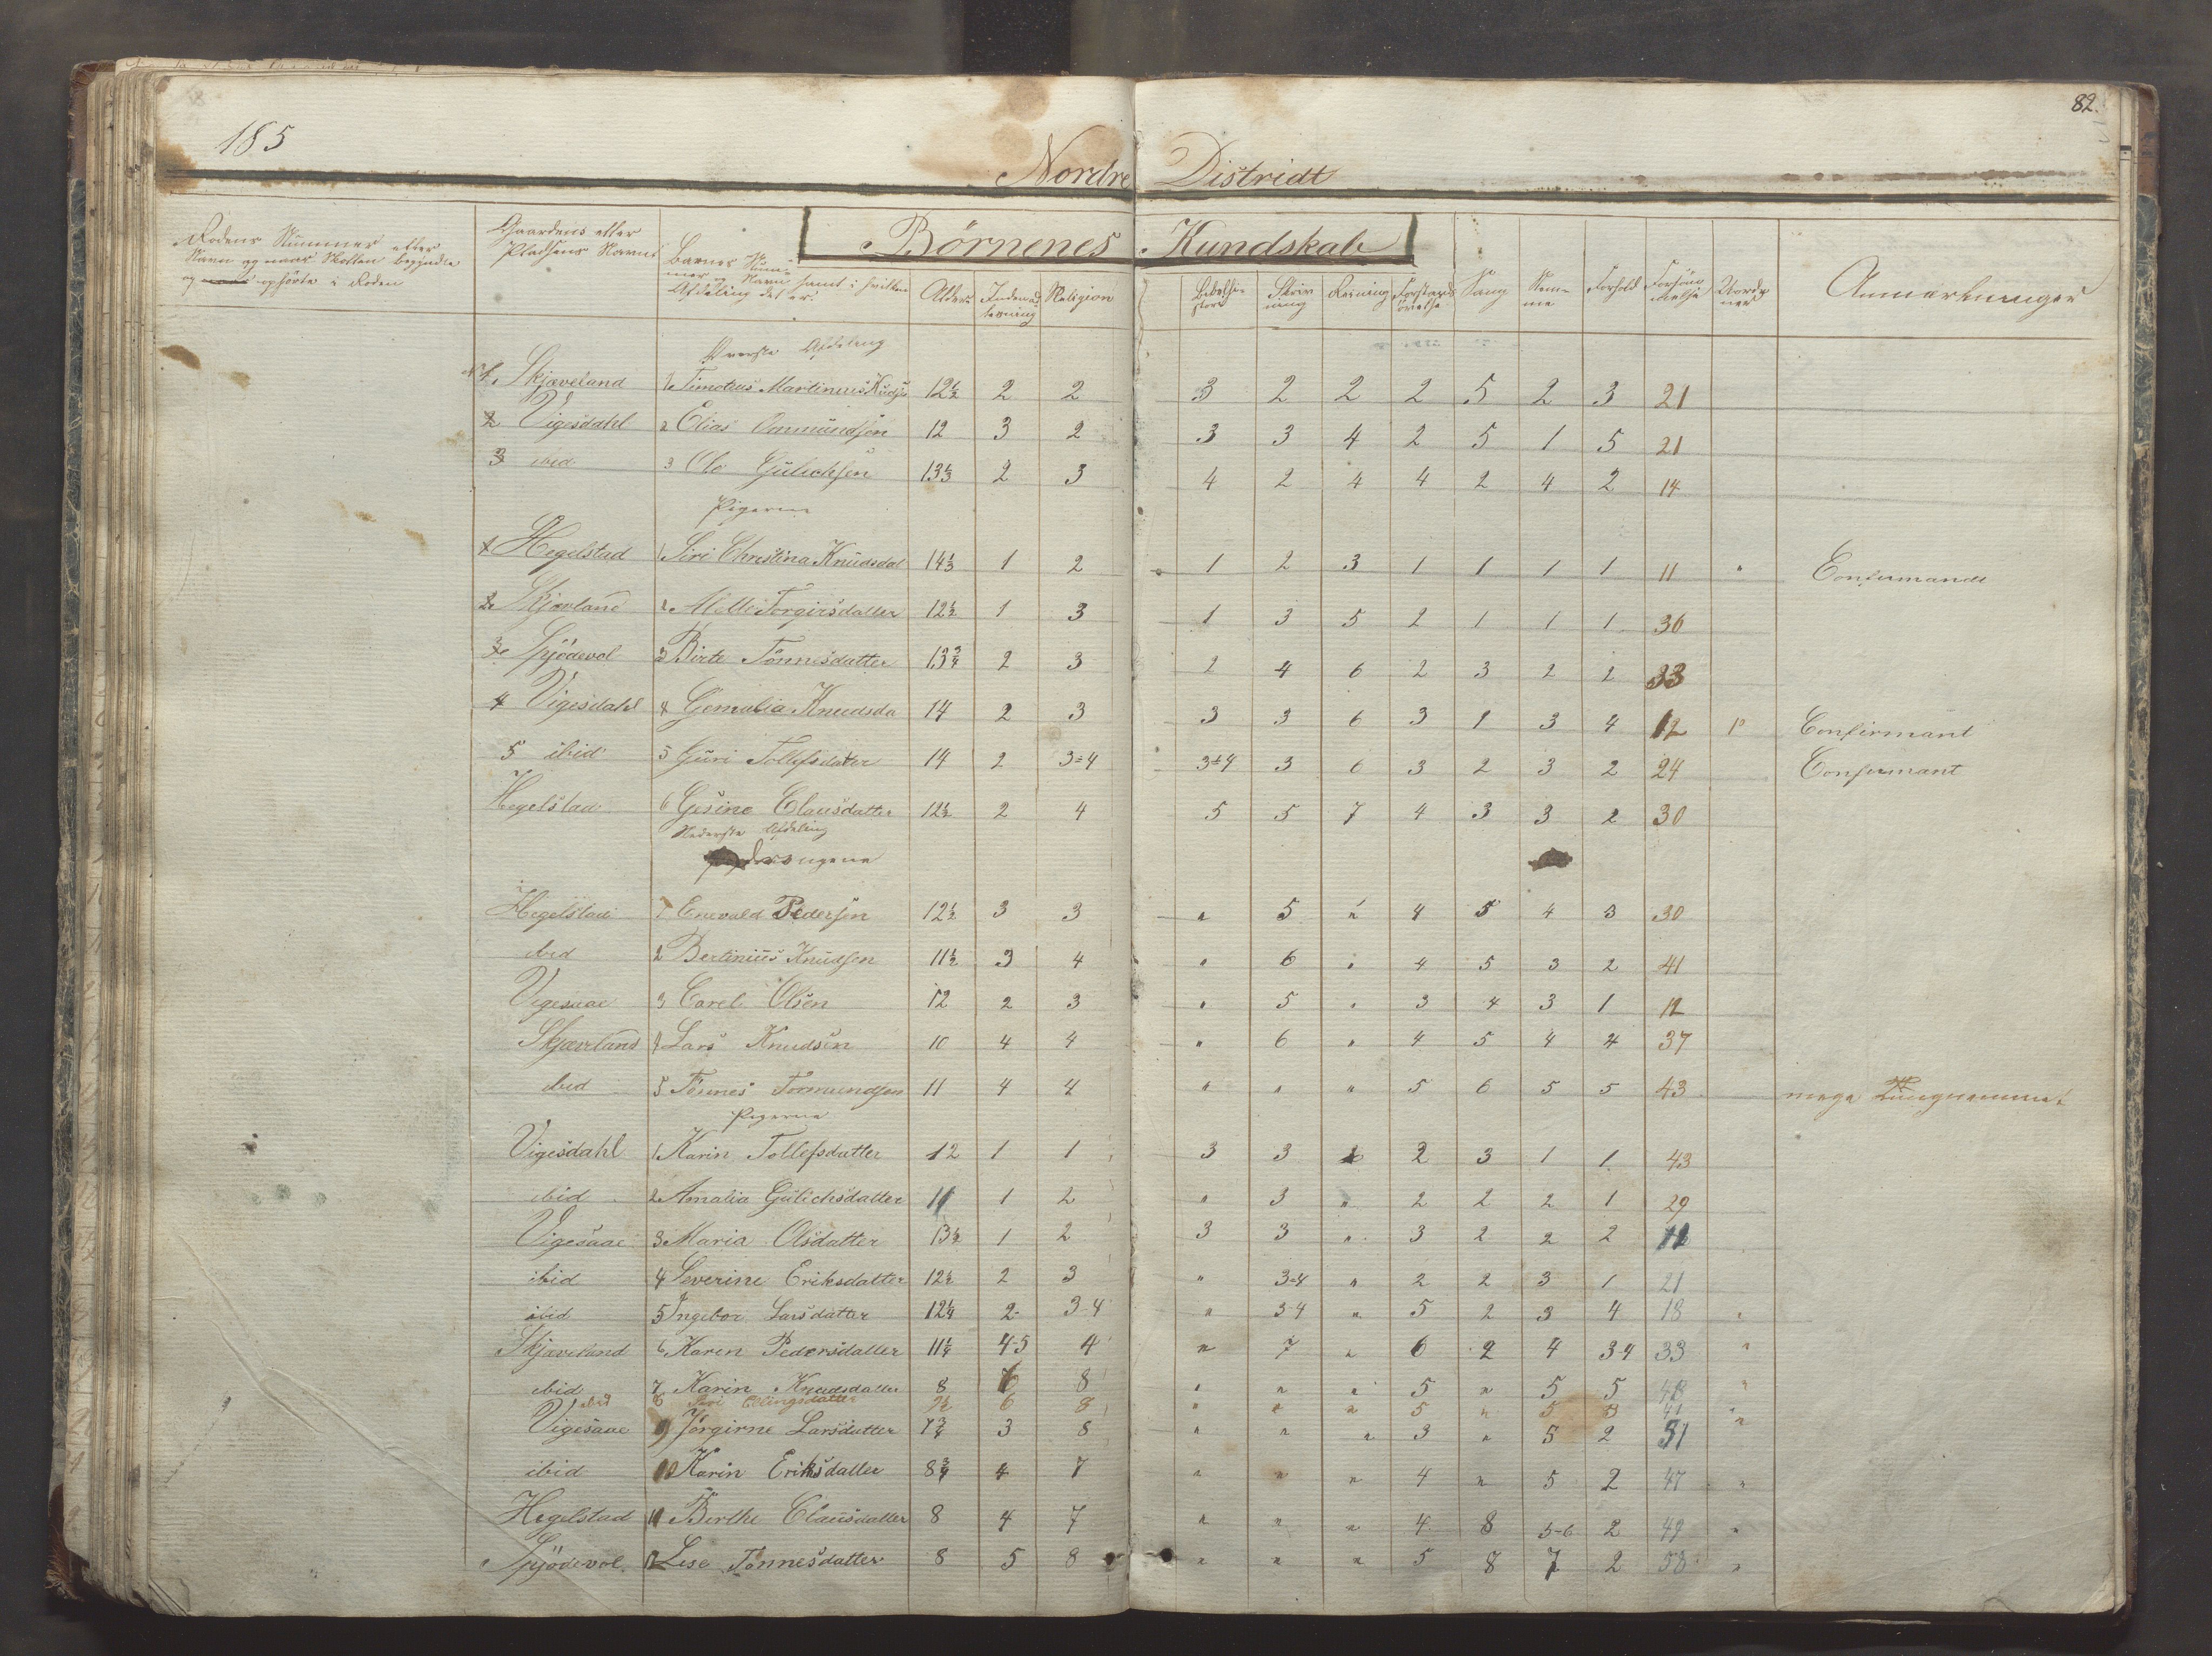 82.
185
Nordre Distridt
Börnenes Kundskab
Rodens Nummer eller
Navn og naar Skolen begyndte
og ophörte i Roden
Gaardens eller
Pladsens Navne
Barnets Num-
mer og Navn samt i hvilken
Afdeling det er.
Alder Religion Bibelhi-
storie Skriv
ning Reining Forstands
övelse Sang Nem-
me Forhold Forsöm-
melse Anmærkninger
Överste Afdeling
N 1. Skjæveland 1 Timoteus Martinius 12½ 2 2 3 2 2 2 5 2 3 21
2 Vigesdahl 2 Elias 12 3 2 3 3 4 2 5 1 5 21
3 ibid 3 Ole Gulichsen 13⅓ 2 3 4 2 4 4 2 4 2 14
Pigerne
1 Hegelstad 1 Siri Christina Knudsdat 14⅓ 1 2 1 2 3 1 1 1 1 11 " Confirmande
2 Skjæveland 2 Torgirsdatter 12½ 1 3 1 3 5 2 1 1 1 36
3 Spjödevol 3 Birte Tönnisdatter 13¾ 2 3 2 4 6 2 3 2 2 33
4 Vigesdahl 4 Knudsda 14 2 3 3 3 6 3 1 3 4 12 Confirmant
5 ibid 5 Guri Tollefsdatter 14 2 3=4 3=4 3 6 3 2 3 2 24 Confirmant
Hegelstad 6 Gesine Clausdatter 12½ 2 4 5 5 7 4 3 3 2 30
Nederste Afdeling
Drengene
Hegelstad 1 Enevald Pedersen 12½ 3 3 " 5 " 4 5 4 3 30
ibid 2 Bertinius Knudsen 11½ 3 4 " 6 " 4 5 3 2 41
Vigesaae 3 Carel Olsen 12 2 3 " 5 " 3 4 3 1 12
Skjæveland 4 Lars Knudsen 10 4 4 " 6 " 4 5 4 4 37
ibid 5 Tönnes Tormundsen 11 4 4 " " " 5 6 5 5 43
Pigerne
Vigesdahl 1 Karin Tollefsdatter 12 1 1 3 3 2 3 1 1 43
ibid 2 Amalia Gulichsdatter 11 1 2 " 3 " 2 2 2 1 29
Vigesaae 3 Maria Olsdatter 13½ 1 2 3 3 " 3 2 2 2
ibid 4 Severine Eriksdatter 12½ 2 3 " 3=4 " 2 2 3 1 21
ibid 5 Ingebor Larsdatter 12¼ 2 3-4 " 3-4 " 5 2 3 4 18 "
Skjæveland 6 Karen Pedersdatter 11¼ 4-5 4 " 7 " 6 2 4 3-4 33 "
ibid 7 Karin Knudsdatter 8 8 " " " 5 " 5 5 48 "
ibid 8 Siri Ellingsdatter 9½ 6 8 " " " 5 " 5 3 41 "
Vigesaae 9 Jörgirne Larsdatter 7¾ 3 8 " " " 3 " 5 2 31 "
ibid 10 Karin Eriksdatter 8¾ 4 7 " " " 4 " 5 2 47 "
Hegelstad 11 Berthe Clausdatter 8 4 7 " " " 4 8 5-6 2 49 "
Spjödevol 12 Lise Tönnesdatter 8 5 8 " " " 5 8 7 2 58 "